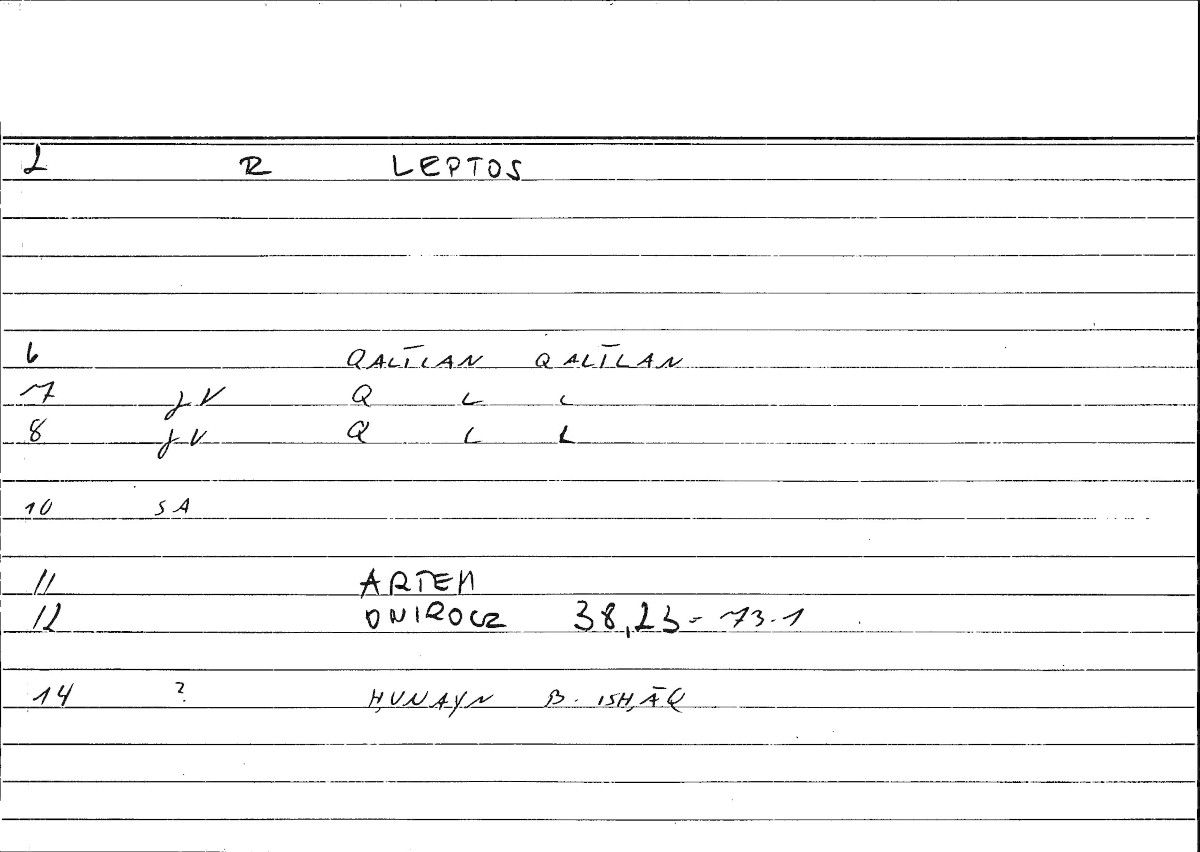 2 R LEPTOS
6 QALĪLAN QALĪLAN
7 JV Q L L
8 JV Q L L
10 SA
11 ARTEM
12 ONIROCR 38,23-73.1
14 ? ḤUNAYN B. ISḤĀQ